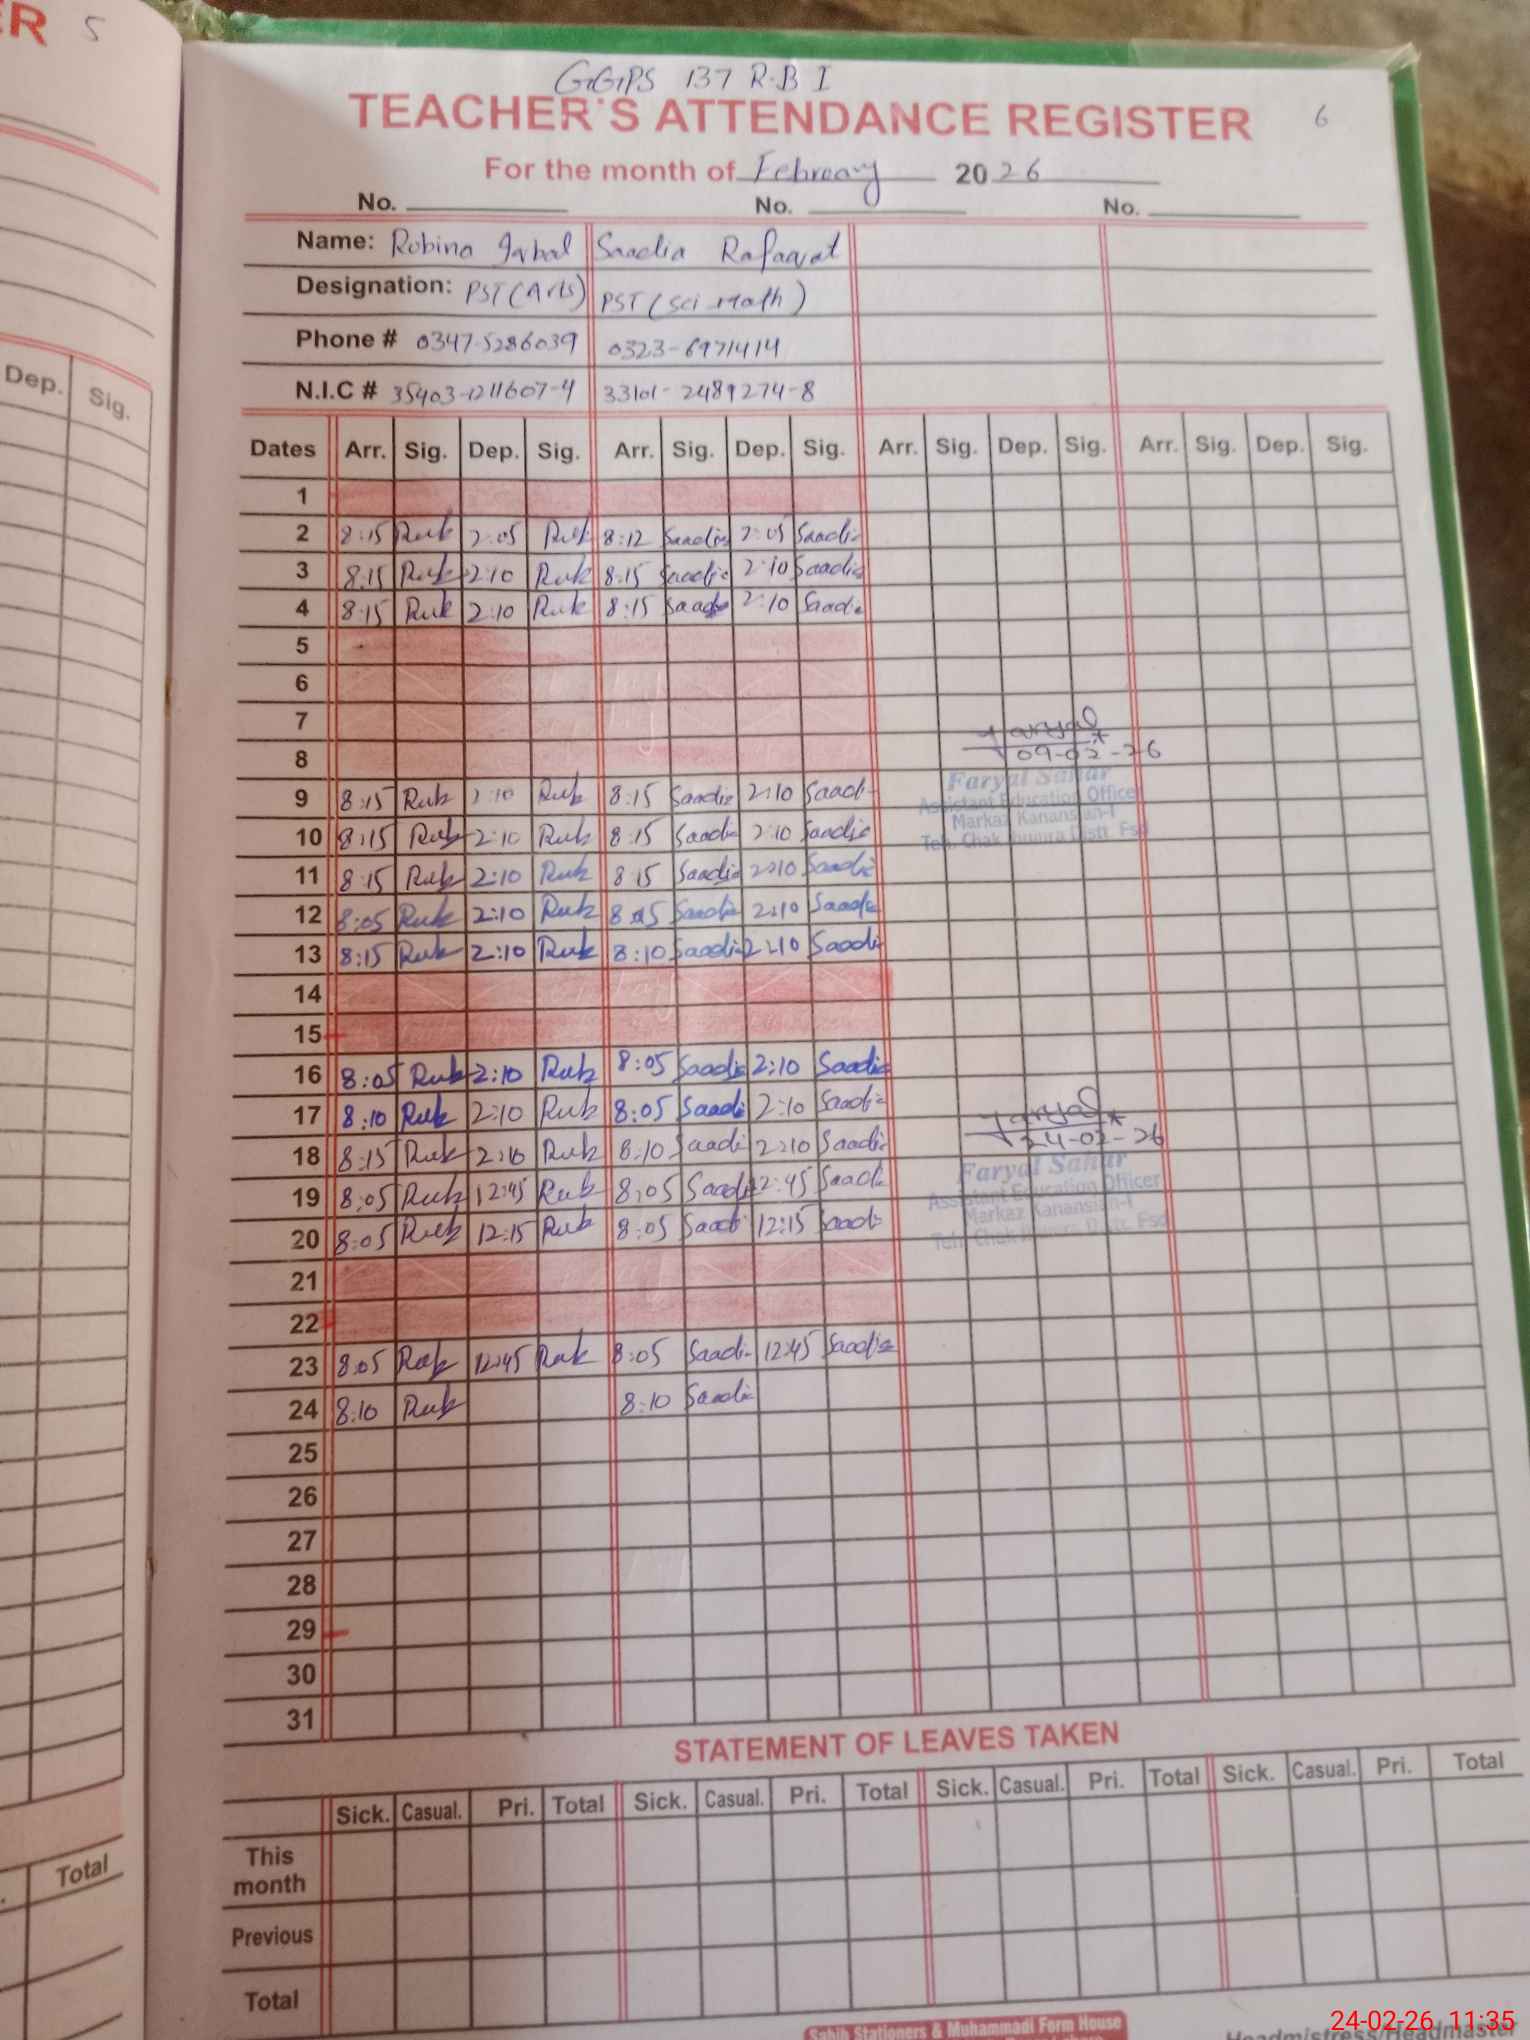 ER 5
GGPS 137 R.B I
TEACHER'S ATTENDANCE REGISTER 6
For the month of February 2026
No. No. No.
Name: Robina Iqbal Saadia Rafaqat
Designation: PST (Arts) PST (Sci-Math)
Phone # 0347-5286039 0323-6971414
N.I.C # 35403-1211607-4 33101-2489274-8
Dep. Sig.
Dates Arr. Sig. Dep. Sig. Arr. Sig. Dep. Sig. Arr. Sig. Dep. Sig. Arr. Sig. Dep. Sig.
1
2 8:15 Rub 2:05 Rub 8:12 Saadia 2:05 Saadia
3 8:15 Rub 2:10 Rub 8:15 Saadia 2:10 Saadia
4 8:15 Rub 2:10 Rub 8:15 Saadia 2:10 Saadia
5
6
7 Faryal
8 09-02-26
Faryal Sahar
9 8:15 Rub 2:10 Rub 8:15 Saadia 2:10 Saadi
Assistant Education Officer
Markaz Kanansian-I
10 8:15 Rub 2:10 Rub 8:15 Saadia 2:10 Saadia
Teh. Chak Jhumra Distt. Fsd
11 8:15 Rub 2:10 Rub 8:15 Saadia 2:10 Saadia
12 8:05 Rub 2:10 Rub 8:15 Saadia 2:10 Saadia
13 8:15 Rub 2:10 Rub 8:10 Saadia 2:10 Saadi
14
15
16 8:05 Rub 2:10 Rub 8:05 Saadia 2:10 Saadia
17 8:10 Rub 2:10 Rub 8:05 Saadi 2:10 Saadia
Faryal
24-02-26
18 8:15 Rub 2:10 Rub 8:10 Saadi 2:10 Saadia
Faryal Sahar
19 8:05 Rub 12:45 Rub 8:05 Saadi 12:45 Saadi
Assistant Education Officer
Markaz Kanansian-I
20 8:05 Rub 12:15 Rub 8:05 Saadi 12:15 Saadi
Teh. Chak Jhumra Distt. Fsd
21
22
23 8:05 Rub 12:45 Rub 8:05 Saadi 12:45 Saadia
24 8:10 Rub 8:10 Saadia
25
26
27
28
29
30
31
STATEMENT OF LEAVES TAKEN
Sick. Casual. Pri. Total Sick. Casual. Pri. Total Sick. Casual. Pri. Total Sick. Casual. Pri. Total
This
month
Total
Previous
Total
Sahib Stationers & Muhammadi Form House
Headmistress/Headmaster
24-02-26 11:35